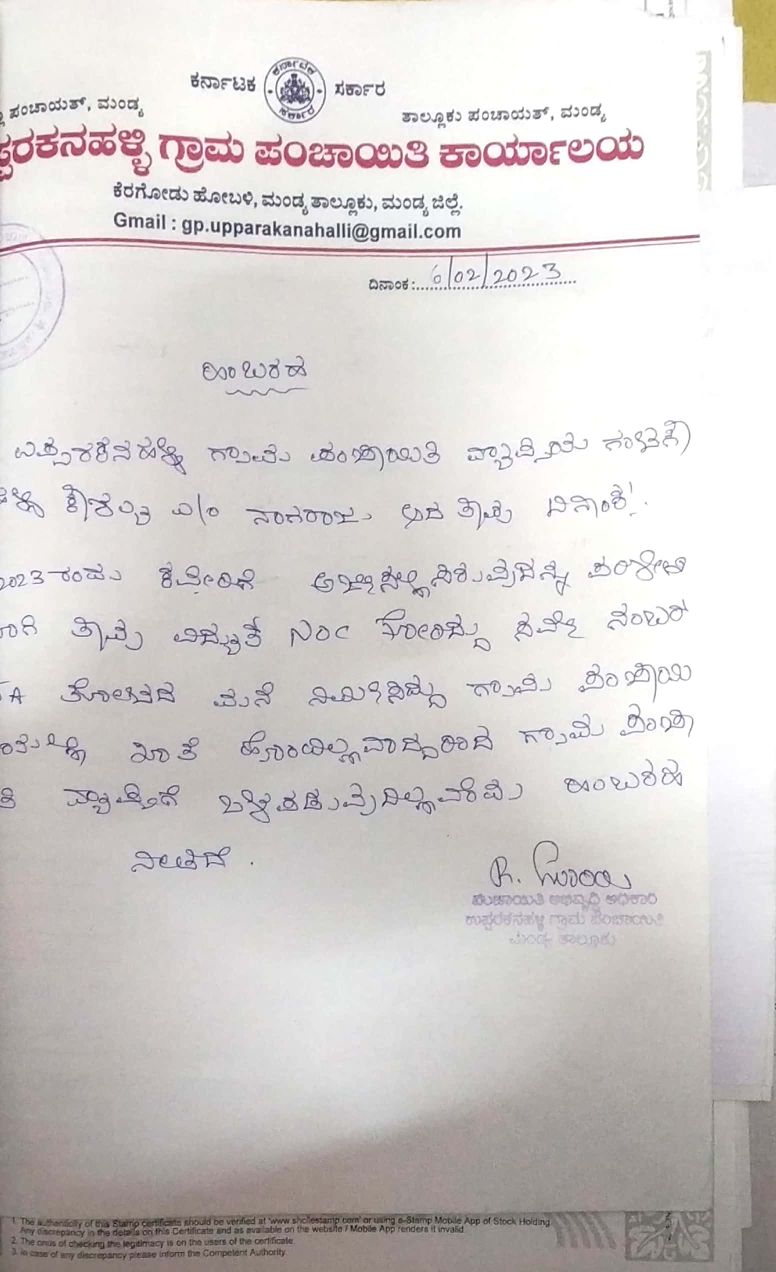 ಕರ್ನಾಟಕ ಸರ್ಕಾರ
ಪಂಚಾಯತ್, ಮಂಡ್ಯ ತಾಲ್ಲೂಕು ಪಂಚಾಯತ್, ಮಂಡ್ಯ
ಪ್ಪರಕನಹಳ್ಳಿ ಗ್ರಾಮ ಪಂಚಾಯಿತಿ ಕಾರ್ಯಾಲಯ
ಕೆರಗೋಡು ಹೋಬಳಿ, ಮಂಡ್ಯ ತಾಲ್ಲೂಕು, ಮಂಡ್ಯ ಜಿಲ್ಲೆ.
Gmail : gp.upparakanahalli@gmail.com
ದಿನಾಂಕ: 6/02/2023
ಹಿಂಬರಹ
ಉಪ್ಪರಕನಹಳ್ಳಿ ಗ್ರಾಮ ಪಂಚಾಯಿತಿ ವ್ಯಾಪ್ತಿಯ
ನಾಗರಾಜು ಆದ ತಾವು ದಿನಾಂಕ:
2023 ರಂದು ಕಚೇರಿಗೆ ಅರ್ಜಿ ಸಲ್ಲಿಸಿರುವುದನ್ನು ಪರಿಶೀಲಿ
ತಾವು ವಿದ್ಯುತ್ NOC ಕೋರಿದ್ದು ಸರ್ವೇ ನಂಬರ
ಮನೆ ನಿರ್ಮಿಸಿದ್ದು ಗ್ರಾಮ ಪಂಚಾಯಿ
ಖಾತೆ ಹೊಂದಿಲ್ಲವಾದ್ದರಿಂದ ಗ್ರಾಮ ಪಂಚಾ
ತಿ ವ್ಯಾಪ್ತಿಗೆ ಒಳಪಡುವುದಿಲ್ಲವೆಂದು ಹಿಂಬರಹ
ನೀಡಿದೆ.
ಪಂಚಾಯಿತಿ ಅಭಿವೃದ್ಧಿ ಅಧಿಕಾರಿ
ಉಪ್ಪರಕನಹಳ್ಳಿ ಗ್ರಾಮ ಪಂಚಾಯಿತಿ
ಮಂಡ್ಯ ತಾಲ್ಲೂಕು
1. The authenticity of this Stamp certificate should be verified at 'www.shcilestamp.com' or using e-Stamp Mobile App of Stock Holding.
Any discrepancy in the details on this Certificate and as available on the website / Mobile App renders it invalid.
2. The onus of checking the legitimacy is on the users of the certificate
3. In case of any discrepancy please inform the Competent Authority